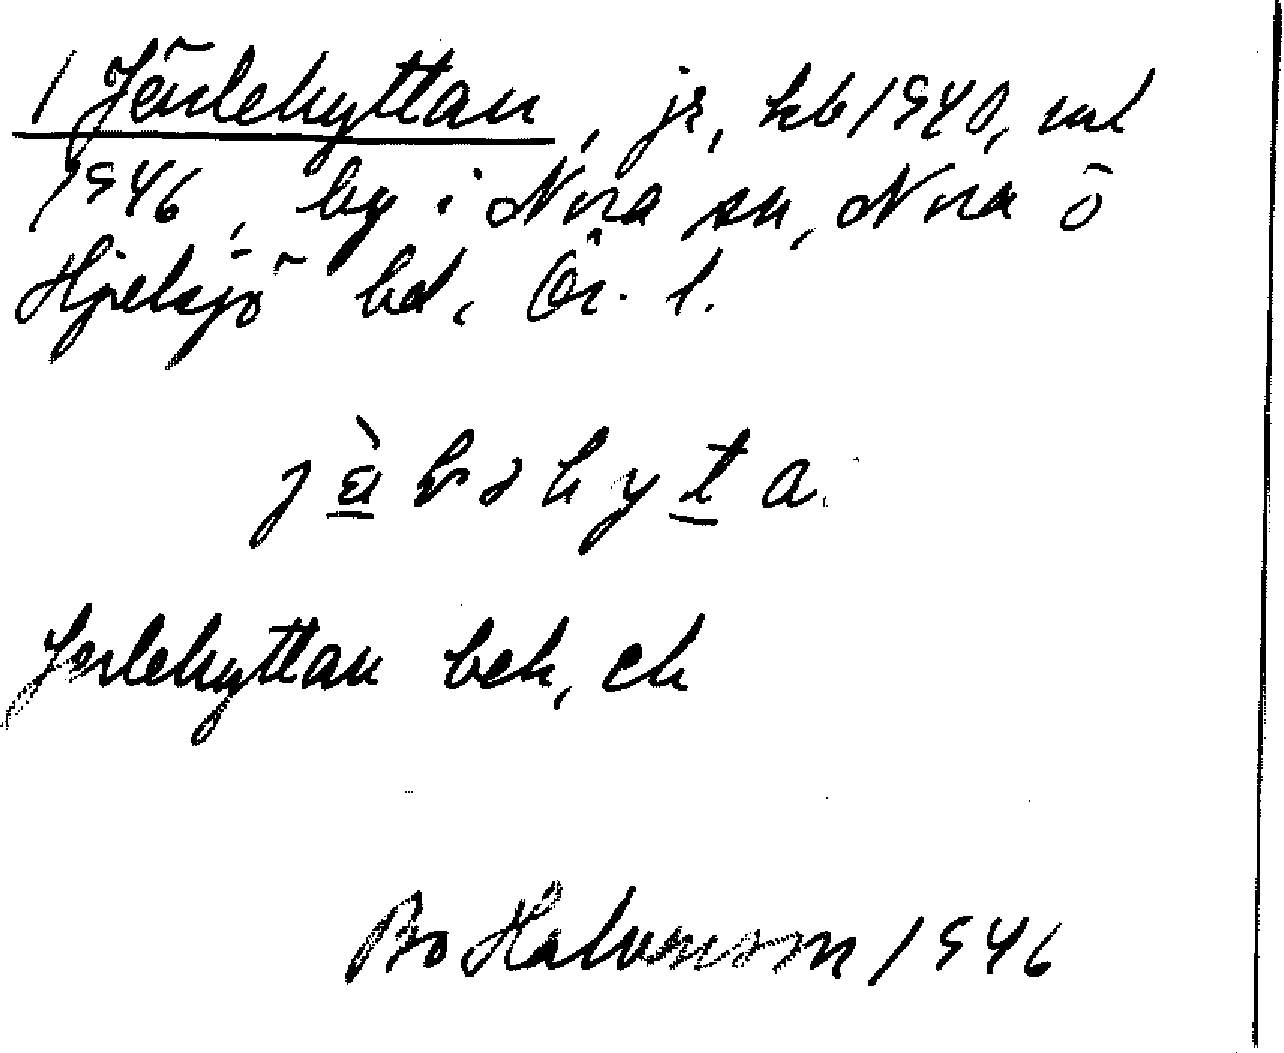 1 Järlehyttan, jr, kb 1940, ml
1946, by i Nora sn, Nora o
Hjelsjö bd, Ör. l.
jä̀ḷəhyta
Jerlehyttan bek, ek
Bo Halvarsson 1946